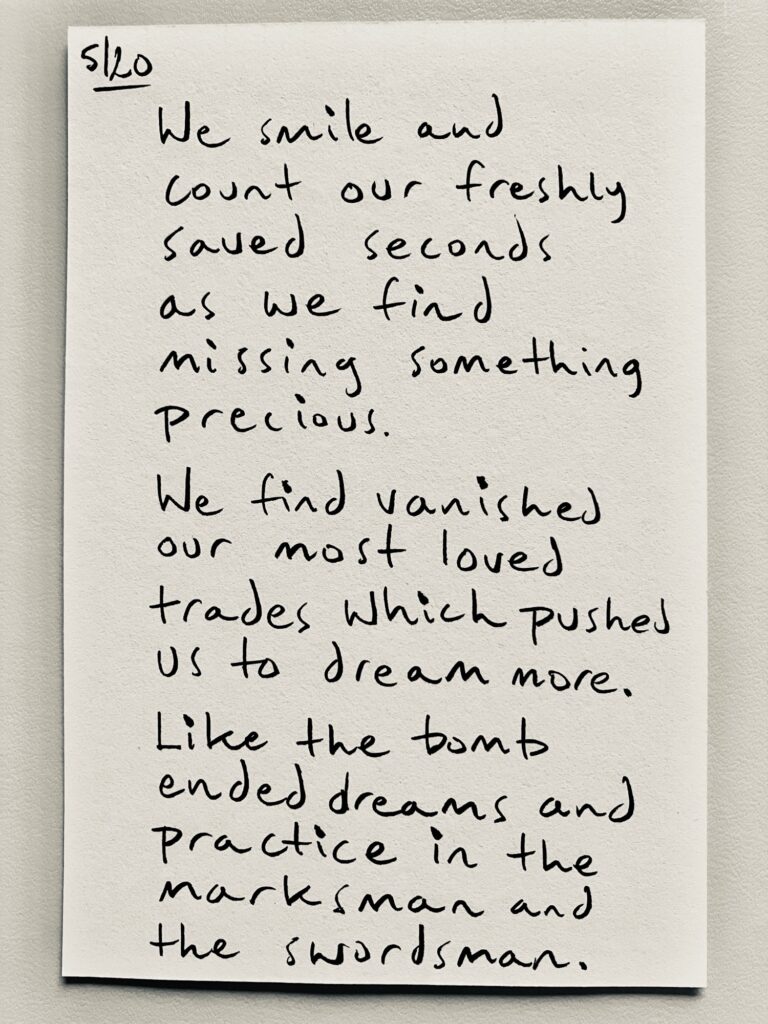 5/20
We smile and
count our freshly
saved seconds
as we find
missing something
precious.
We find vanished
our most loved
trades which pushed
us to dream more.
Like the bomb
ended dreams and
practice in the
marksman and
the swordsman.